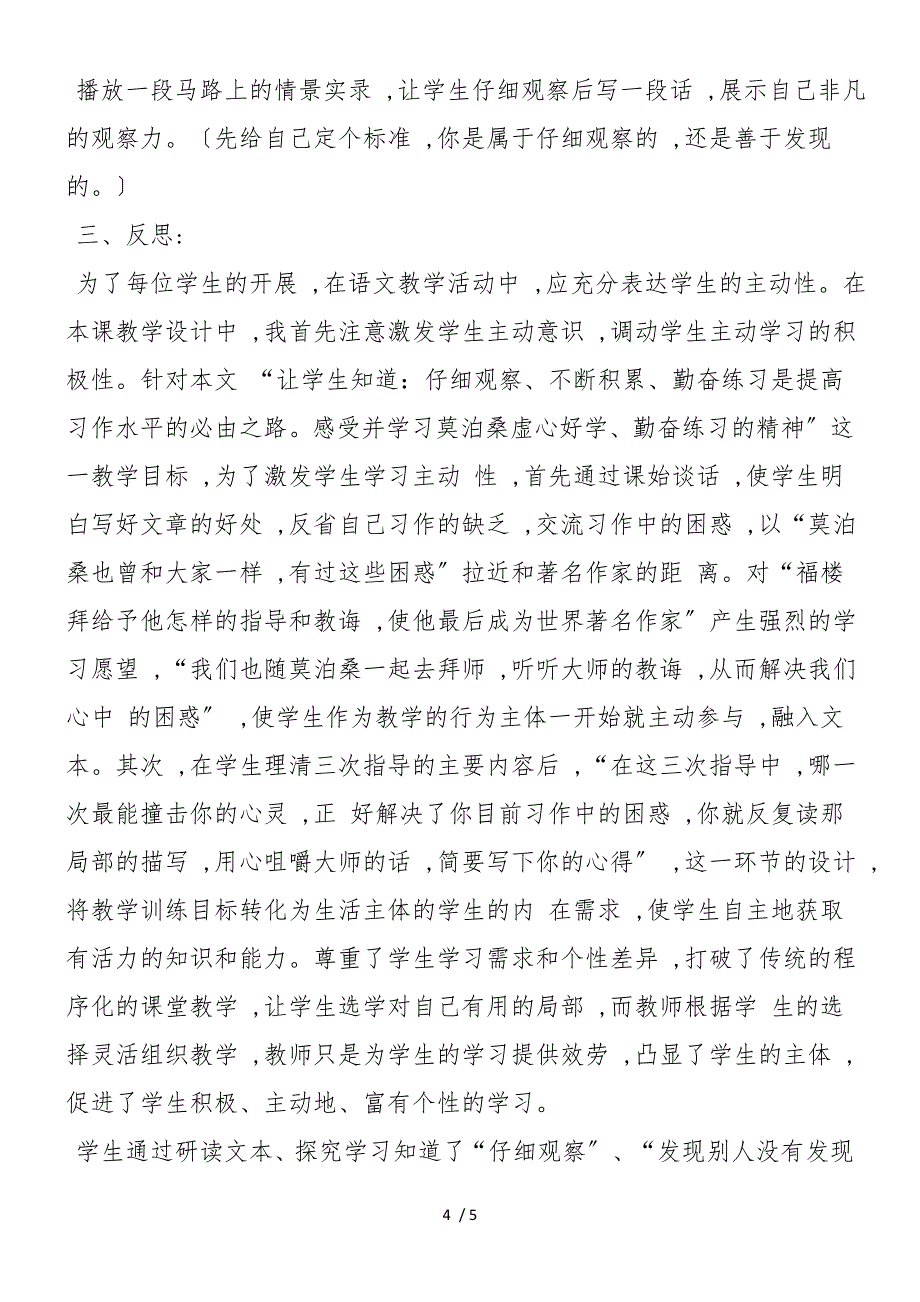 播放一段马路上的情景实录 ,让学生仔细观察后写一段话 ,展示自己非凡
的观察力。〔先给自己定个标准 ,你是属于仔细观察的 ,还是善于发现
的。〕
三、反思:
为了每位学生的开展 ,在语文教学活动中 ,应充分表达学生的主动性。在
本课教学设计中 ,我首先注意激发学生主动意识 ,调动学生主动学习的积
极性。针对本文 “让学生知道: 仔细观察、不断积累、勤奋练习是提高
习作水平的必由之路。感受并学习莫泊桑虚心好学、勤奋练习的精神〞这
一教学目标 ,为了激发学生学习主动 性 ,首先通过课始谈话 ,使学生明
白写好文章的好处 ,反省自己习作的缺乏 ,交流习作中的困惑 ,以“莫泊
桑也曾和大家一样 ,有过这些困惑〞拉近和著名作家的距 离。对“福楼
拜给予他怎样的指导和教诲 ,使他最后成为世界著名作家〞产生强烈的学
习愿望 ,“我们也随莫泊桑一起去拜师 ,听听大师的教诲 ,从而解决我们
心中 的困惑〞 ,使学生作为教学的行为主体一开始就主动参与 ,融入文
本。其次 ,在学生理清三次指导的主要内容后 ,“在这三次指导中 ,哪一
次最能撞击你的心灵 ,正 好解决了你目前习作中的困惑 ,你就反复读那
局部的描写 ,用心咀嚼大师的话 ,简要写下你的心得〞 ,这一环节的设计 ,
将教学训练目标转化为生活主体的学生的内 在需求 ,使学生自主地获取
有活力的知识和能力。尊重了学生学习需求和个性差异 ,打破了传统的程
序化的课堂教学 ,让学生选学对自己有用的局部 ,而教师根据学 生的选
择灵活组织教学 ,教师只是为学生的学习提供效劳 ,凸显了学生的主体 ,
促进了学生积极、主动地、富有个性的学习。
学生通过研读文本、探究学习知道了“仔细观察〞、“发现别人没有发现
4 / 5